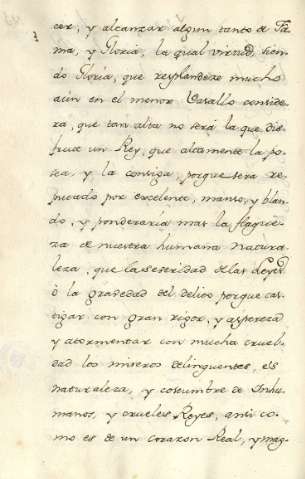 cer, y alcanzar algun tanto de Fa-
ma, y Gloria, la qual virtud, sien-
do Gloria, que resplandeze mucho
aún en el menor Vasallo conside-
ra, que tan alta no será la que dis-
frute un Rey, que altamente la po-
sea, y la consiga, porque sera re-
putado por excelente, manso, y blan-
do, y ponderaría mas la flaque-
za de nuestra humana natura-
leza, que la seberidad de las Leyes
ò la gravedad del delito porque cas-
tigar con gran rigor, y aspereza
y atormentar con mucha cruel-
dad los miseros delinquentes, es
naturaleza, y costumbre de Inhu-
manos, y crueles Reyes, ansi co-
mo es de un corazon Real, y mag-